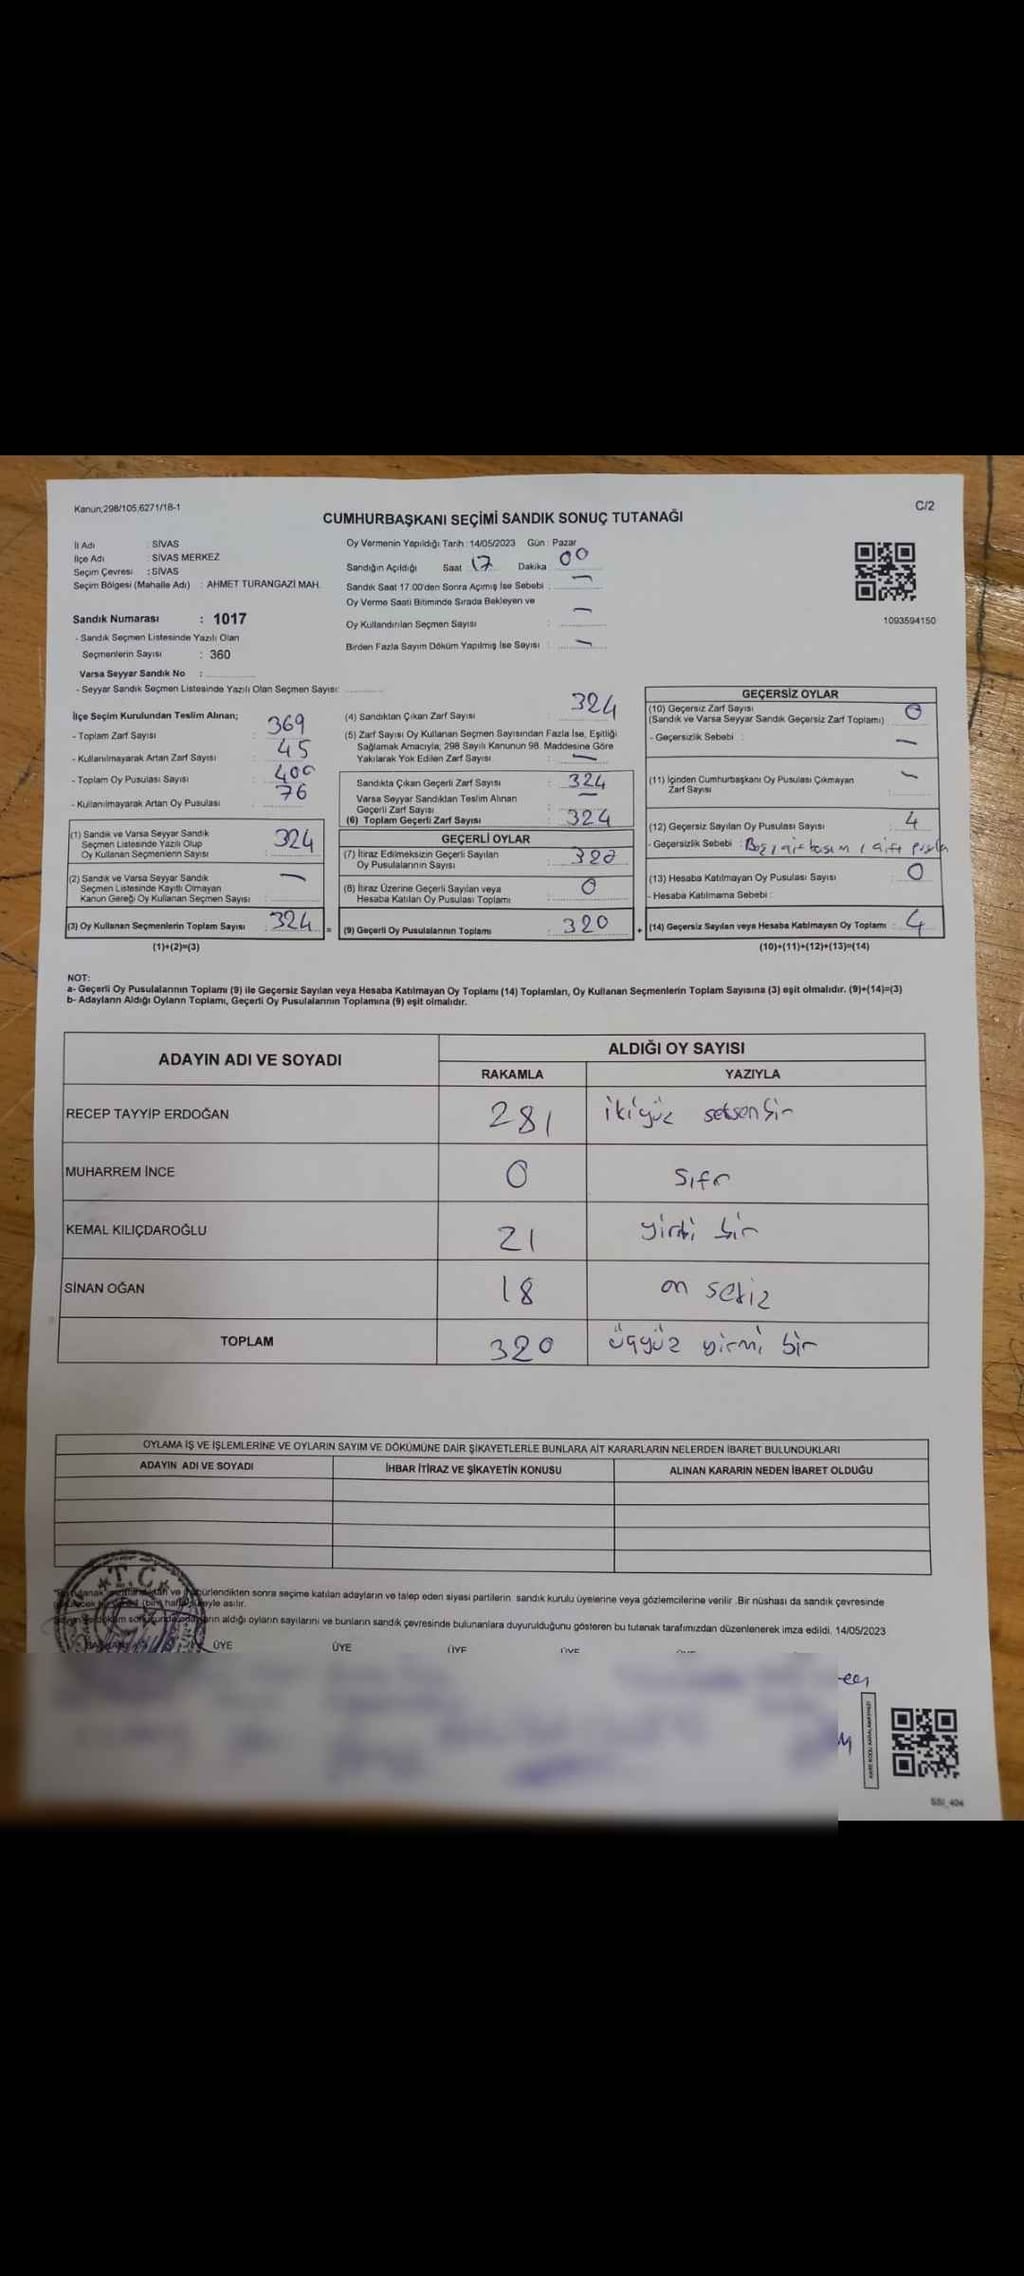 Kanun;298/105,6271/18-1
C/2
CUMHURBAŞKANI SEÇİMİ SANDIK SONUÇ TUTANAĞI
İl Adı : SİVAS
İlçe Adı : SİVAS MERKEZ
Seçim Çevresi : SİVAS
Seçim Bölgesi (Mahalle Adı) : AHMET TURANGAZİ MAH.
Sandık Numarası : 1017
- Sandık Seçmen Listesinde Yazılı Olan
Seçmenlerin Sayısı : 360
Varsa Seyyar Sandık No :
- Seyyar Sandık Seçmen Listesinde Yazılı Olan Seçmen Sayısı:
Oy Vermenin Yapıldığı Tarih :14/05/2023 Gün : Pazar
Sandığın Açıldığı Saat 17 Dakika 00
Sandık Saat 17.00'den Sonra Açımış İse Sebebi : —
Oy Verme Saati Bitiminde Sırada Bekleyen ve
Oy Kullandırılan Seçmen Sayısı : —
Birden Fazla Sayım Döküm Yapılmış İse Sayısı : —
1093594150
İlçe Seçim Kurulundan Teslim Alınan;
- Toplam Zarf Sayısı : 369
- Kullanılmayarak Artan Zarf Sayısı : 45
- Toplam Oy Pusulası Sayısı : 400
- Kullanılmayarak Artan Oy Pusulası : 76
(1) Sandık ve Varsa Seyyar Sandık
Seçmen Listesinde Yazılı Olup
Oy Kullanan Seçmenlerin Sayısı : 324
(2) Sandık ve Varsa Seyyar Sandık
Seçmen Listesinde Kayıtlı Olmayan
Kanun Gereği Oy Kullanan Seçmen Sayısı : —
(3) Oy Kullanan Seçmenlerin Toplam Sayısı : 324 =
(1)+(2)=(3)
(4) Sandıktan Çıkan Zarf Sayısı : 324
(5) Zarf Sayısı Oy Kullanan Seçmen Sayısından Fazla İse, Eşitliği
Sağlamak Amacıyla, 298 Sayılı Kanunun 98. Maddesine Göre
Yakılarak Yok Edilen Zarf Sayısı : —
Sandıkta Çıkan Geçerli Zarf Sayısı : 324
Varsa Seyyar Sandıktan Teslim Alınan
Geçerli Zarf Sayısı : —
(6) Toplam Geçerli Zarf Sayısı : 324
GEÇERLİ OYLAR
(7) İtiraz Edilmeksizin Geçerli Sayılan
Oy Pusulalarının Sayısı : 320
(8) İtiraz Üzerine Geçerli Sayılan veya
Hesaba Katılan Oy Pusulası Toplamı : 0
(9) Geçerli Oy Pusulalarının Toplamı : 320 +
GEÇERSİZ OYLAR
(10) Geçersiz Zarf Sayısı
(Sandık ve Varsa Seyyar Sandık Geçersiz Zarf Toplamı) : 0
- Geçersizlik Sebebi : —
(11) İçinden Cumhurbaşkanı Oy Pusulası Çıkmayan
Zarf Sayısı : —
(12) Geçersiz Sayılan Oy Pusulası Sayısı : 4
- Geçersizlik Sebebi : Boş, çift basım, çift pusula
(13) Hesaba Katılmayan Oy Pusulası Sayısı : 0
- Hesaba Katılmama Sebebi :
(14) Geçersiz Sayılan veya Hesaba Katılmayan Oy Toplamı : 4
(10)+(11)+(12)+(13)=(14)
NOT:
a- Geçerli Oy Pusulalarının Toplamı (9) ile Geçersiz Sayılan veya Hesaba Katılmayan Oy Toplamı (14) Toplamları, Oy Kullanan Seçmenlerin Toplam Sayısına (3) eşit olmalıdır. (9)+(14)=(3)
b- Adayların Aldığı Oyların Toplamı, Geçerli Oy Pusulalarının Toplamına (9) eşit olmalıdır.
ADAYIN ADI VE SOYADI
ALDIĞI OY SAYISI
RAKAMLA YAZIYLA
RECEP TAYYİP ERDOĞAN 281 ikiyüz seksenbir
MUHARREM İNCE 0 sıfır
KEMAL KILIÇDAROĞLU 21 yirmi bir
SİNAN OĞAN 18 on sekiz
TOPLAM 320 üçyüz yirmi bir
OYLAMA İŞ VE İŞLEMLERİNE VE OYLARIN SAYIM VE DÖKÜMÜNE DAİR ŞİKAYETLERLE BUNLARA AİT KARARLARIN NELERDEN İBARET BULUNDUKLARI
ADAYIN ADI VE SOYADI İHBAR İTİRAZ VE ŞİKAYETİN KONUSU ALINAN KARARIN NEDEN İBARET OLDUĞU
T.C.
sonra seçime katılan adayların ve talep eden siyasi partilerin sandık kurulu üyelerine veya gözlemcilerine verilir .Bir nüshası da sandık çevresinde
asılır.
aldığı oyların sayılarını ve bunların sandık çevresinde bulunanlara duyurulduğunu gösteren bu tutanak tarafımızdan düzenlenerek imza edildi. 14/05/2023
ÜYE ÜYE ÜYE ÜYE